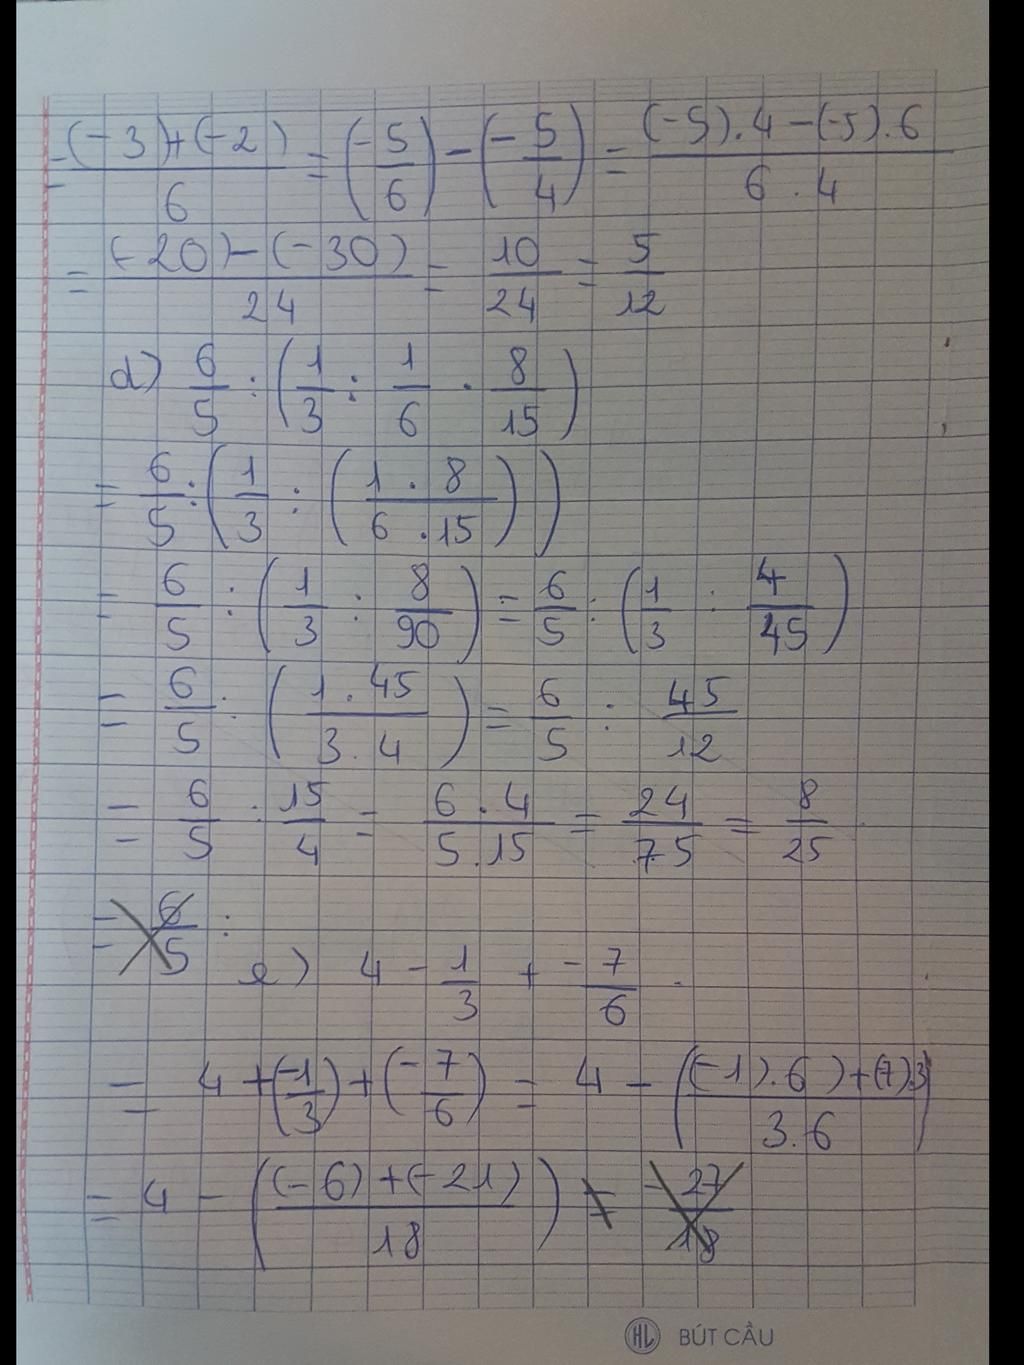 = ((-3)+(-2))/6 = (-5/6) - (-5/4) = ((-5).4-(-5).6)/(6.4)
= ((-20)-(-30))/24 = 10/24 = 5/12
d) 6/5 : (1/3 : 1/6 . 8/15)
= 6/5 : (1/3 : ((1.8)/(6.15)))
= 6/5 : (1/3 : 8/90) = 6/5 : (1/3 : 4/45)
= 6/5 : ((1.45)/(3.4)) = 6/5 : 45/12
= 6/5 : 15/4 = (6.4)/(5.15) = 24/75 = 8/25
= 6/5 :
e) 4 - 1/3 + -7/6
= 4 + (-1/3) + (-7/6) = 4 - (((-1).6)+(-7).3)/(3.6)
= 4 - (((-6)+(-21))/18) = -27/18
HL BÚT CẦU